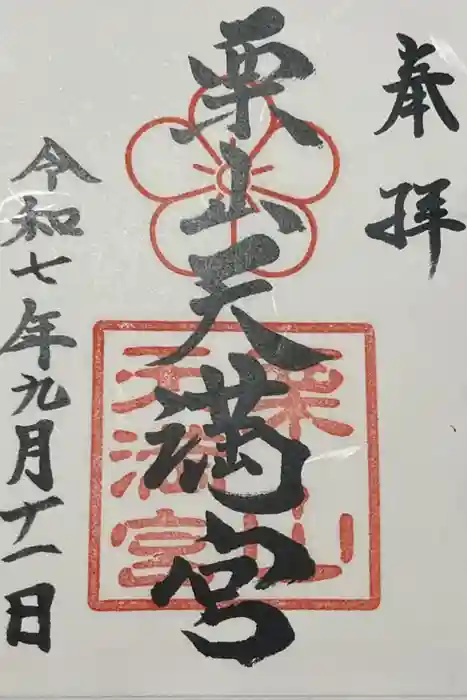 奉拝
栗山天満宮
栗山
天満宮
令和七年九月十一日